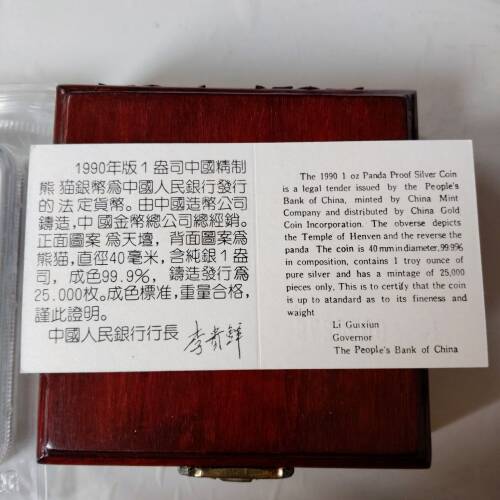 1990年版1盎司中國精制
熊猫銀幣爲中國人民銀行發行
的法定貨幣。由中國造幣公司
鑄造,中國金幣總公司總經銷。
正面圖案爲天壇,背面圖案爲
熊猫,直徑40毫米,含純銀1盎
司,成色99.9%,鑄造發行爲
25.000枚。成色標准,重量合格,
謹此證明。
中國人民銀行行長 李貴鮮
The 1990 1 oz Panda Proof Silver Coin
is a legal tender issued by the People's
Bank of China, minted by China Mint
Company and distributed by China Gold
Coin Incorporation. The obverse depicts
the Temple of Henven and the reverse the
panda. The coin is 40mm in diameter, 99.99%
in composition, contains 1 troy ounce of
pure silver and has a mintage of 25,000
pieces only, This is to certify that the coin
is up to atandard as to its fineness and
waight
Li Guixiun
Governor
The People's Bank of China